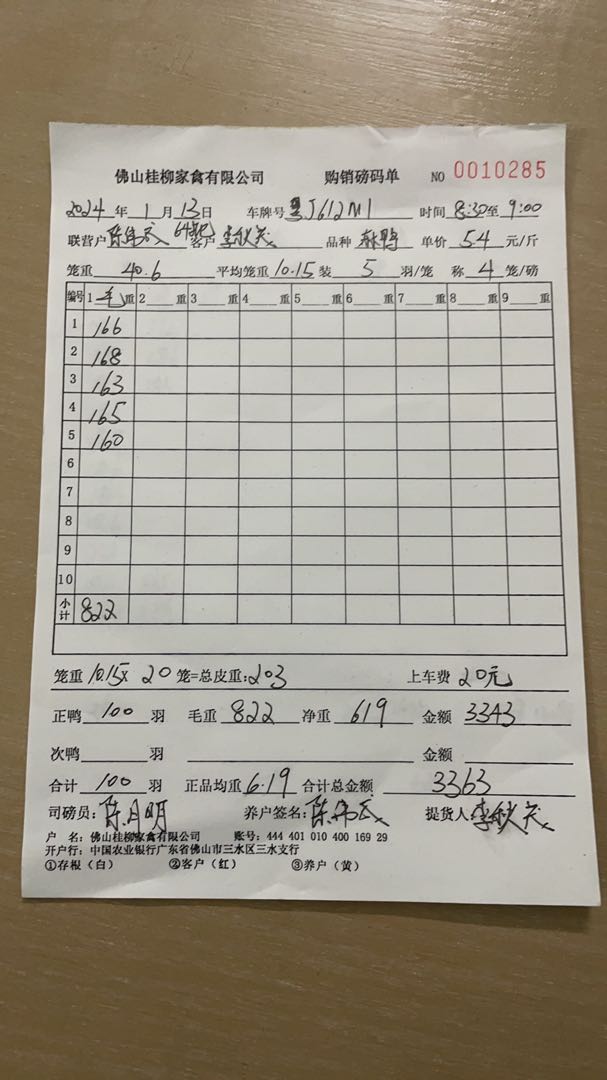 佛山桂柳家禽有限公司 购销磅码单 NO 0010285
2024年1月13日 车牌号 粤J612M1 时间 8:30至9:00
联营户 陈伟民 64批 客户 李秋 品种 鸭 单价 5.4 元/斤
笼重 40.6 平均笼重 10.15 装 5 羽/笼 称 4 笼/磅
编号 1 毛 重 2 重 3 重 4 重 5 重 6 重 7 重 8 重 9 重
1 166
2 168
3 163
4 165
5 160
6
7
8
9
10
小计 822
笼重 10.15× 20 笼=总皮重:203 上车费 20元
正鸭 100 羽 毛重 822 净重 619 金额 3343
次鸭 羽 金额
合计 100 羽 正品均重 6.19 合计总金额 3363
司磅员: 陈月明 养户签名: 陈伟民 提货人 李秋
户 名: 佛山桂柳家禽有限公司 账号: 444 401 010 400 169 29
开户行: 中国农业银行广东省佛山市三水区三水支行
①存根（白） ②客户（红） ③养户（黄）